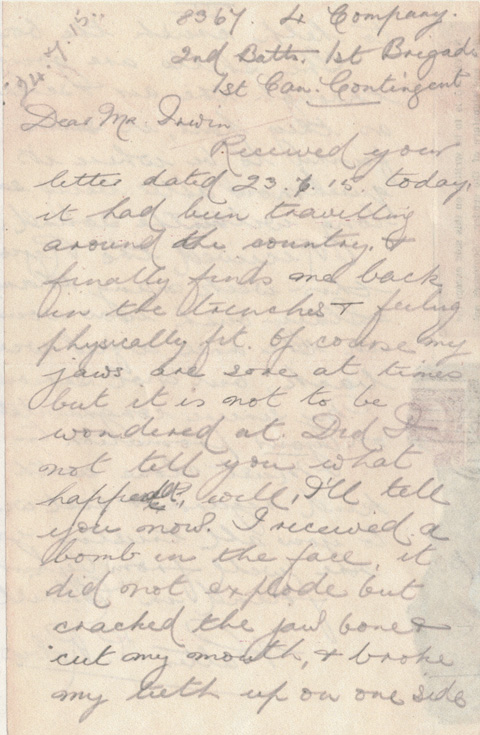 8367. 4 Company.
2nd Battn. 1st Brigade
1st Can. Contingent
24.7.15.
Dear Mr. Irwin
Received your
letter dated 23.6.15. today,
it had been travelling
around the country, &
finally finds me back
in the trenches & feeling
physically fit. Of course my
jaws are sore at times
but it is not to be
wondered at. Did I
not tell you what
happened, well, I'll tell
you now. I received a
bomb in the face, it
did not explode but
cracked the jaw bone &
cut my mouth, & broke
my teeth up on one side